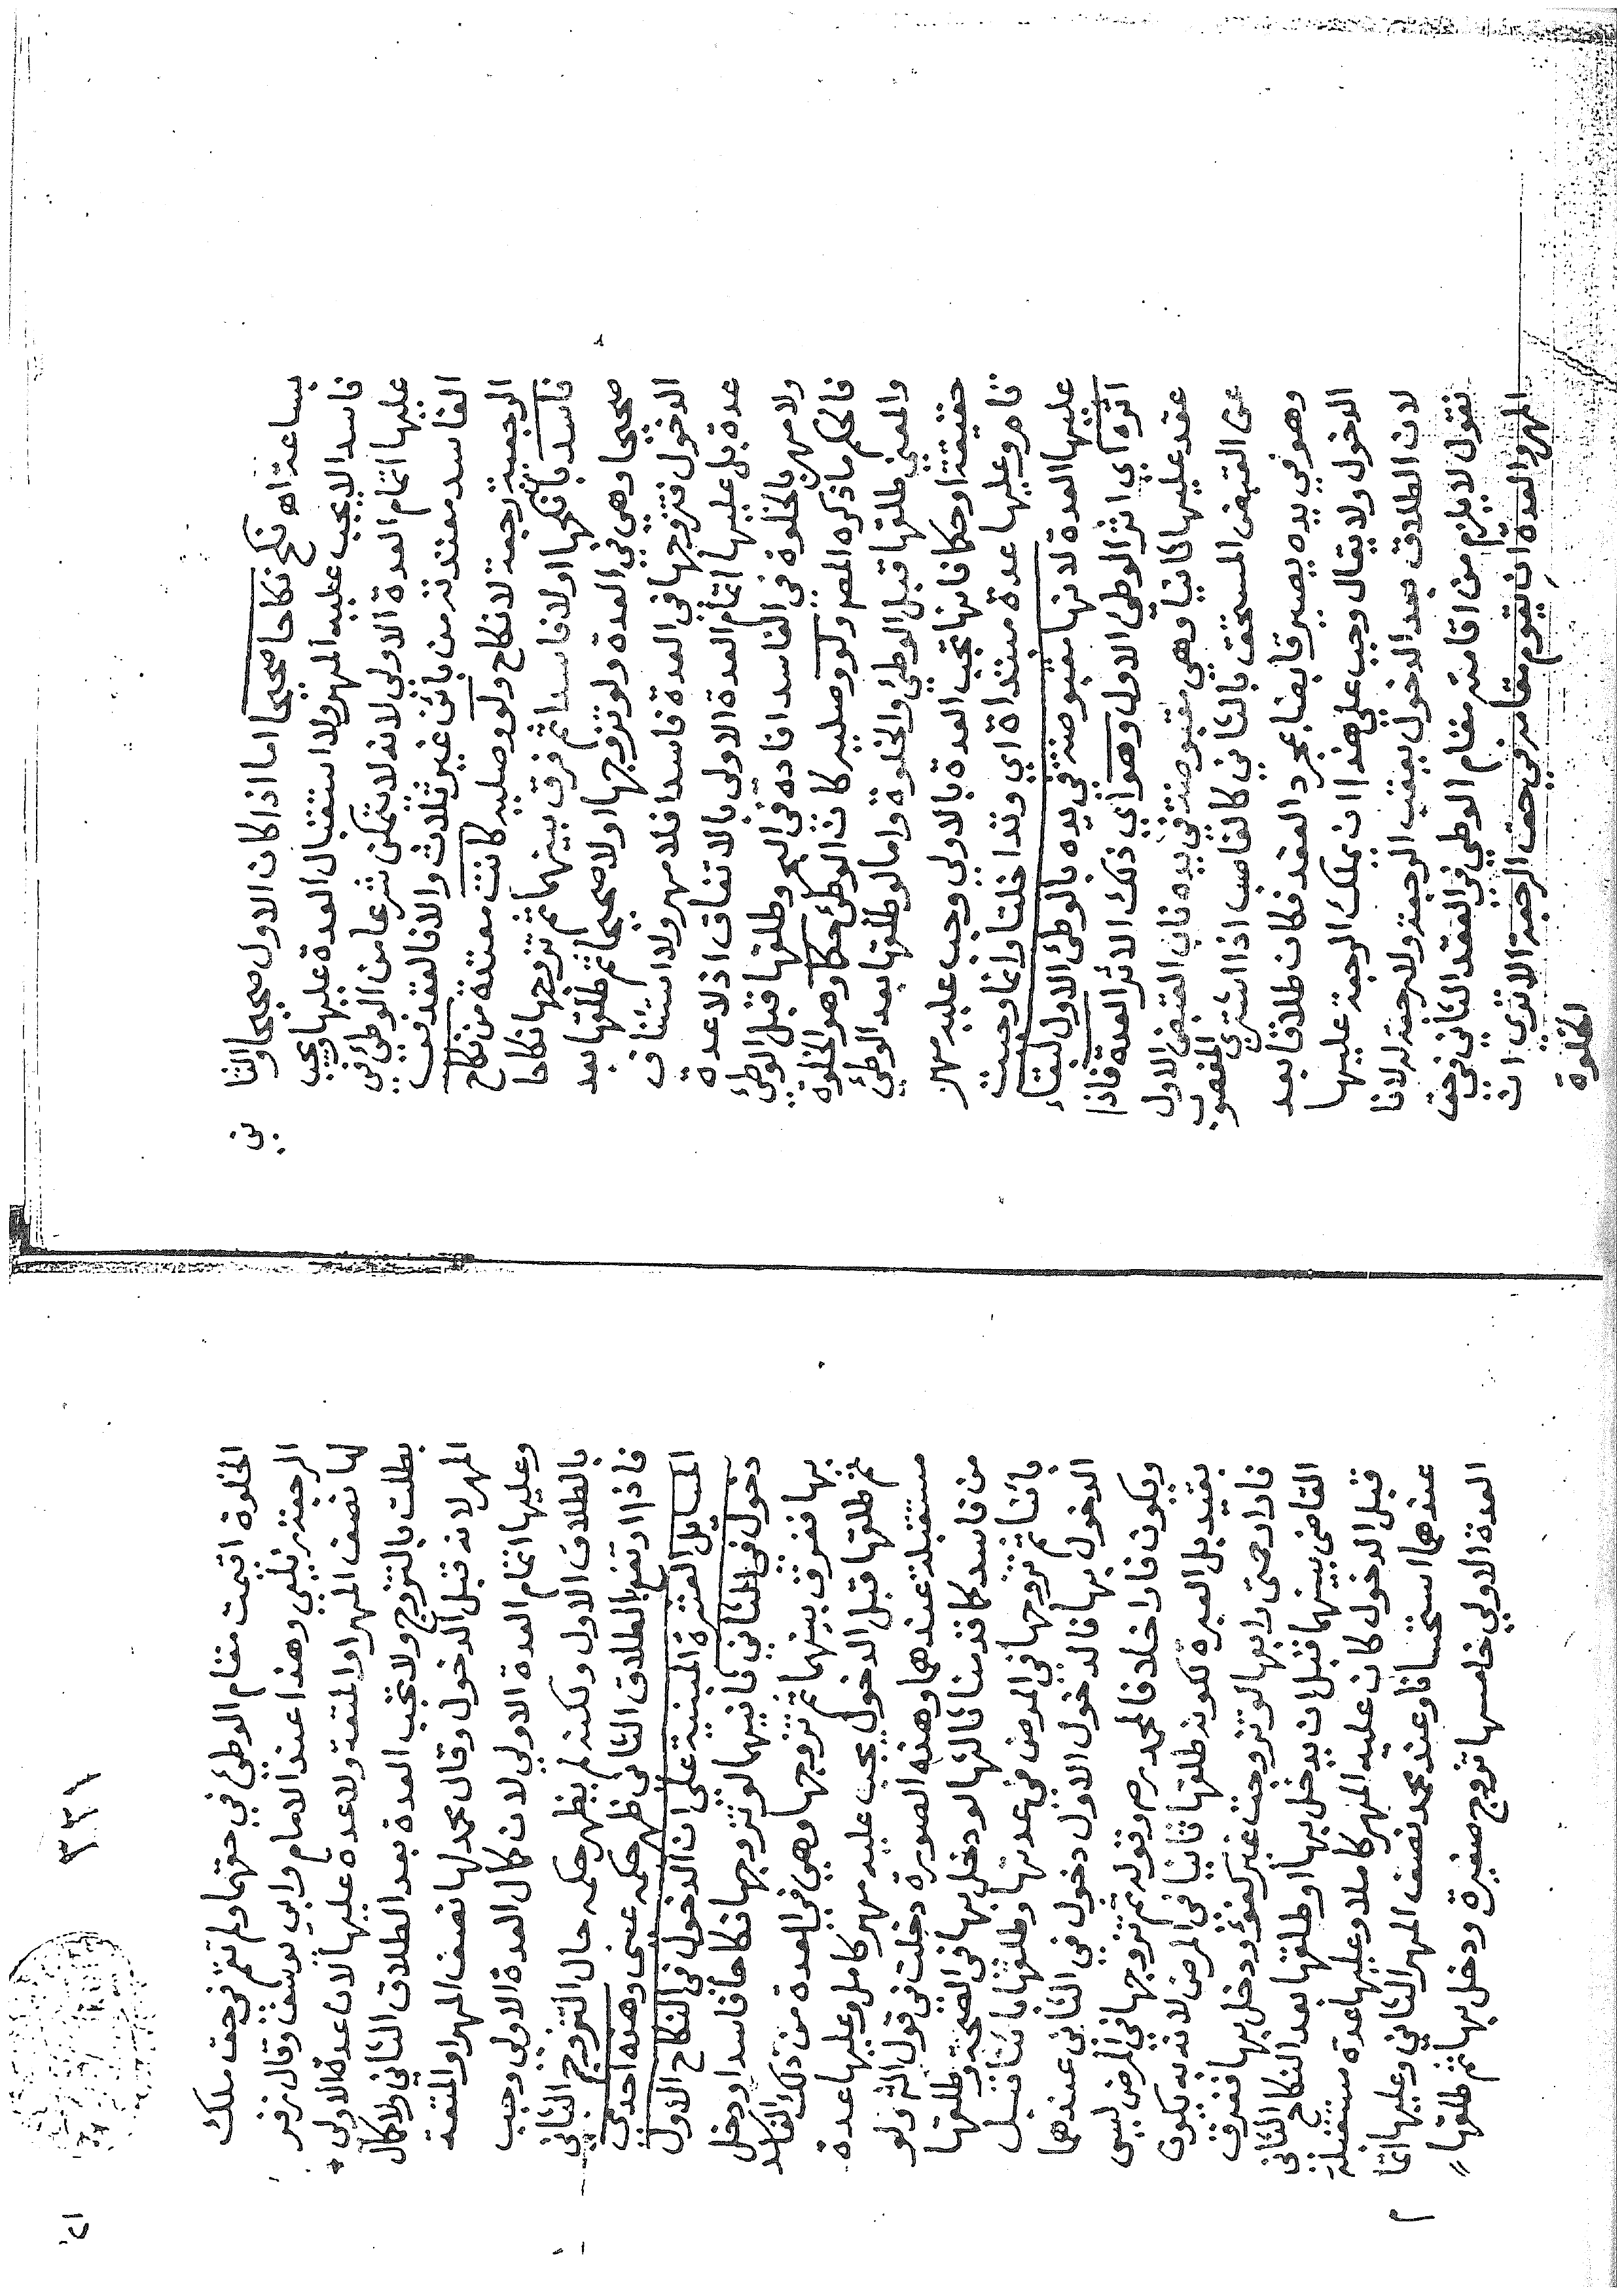 بساعة اه نكح نكاحا صحيحا اما اذا كان الاول صحيحا والثا
ني
فاسدا لا يجب عليه المهر ولا استقبال العدة عليها ويجب
عليها اتمام العدة الاولى لانه لا يتمكن شرعا من الوطئ في
الفاسد معتدته من بائن غير ثلاث والا فالعقد في
الرجعية رجعة لا نكاح ولو وصليه كانت معتدة من نكاح
فاسد بأن نكحها اولا فاسدا ثم فرق بينهما ثم تزوجها نكاحا
صحيحا وهي في العدة ولو تزوجها اولا صحيحا ثم طلقها بعد
الدخول فتزوجها في العدة فاسدا فلا مهر ولا استئناف
عدة بل عليها اتمام العدة الاولى بالاتفاق اذ لا عدة
ولا مهر بالخلوة في الفاسد افاده في البحر وطلقها قبل الوطئ
فالحكم ما ذكره المص ولو وصليه كان الوطئ حكما وهو الخلوة
والمعنى طلقها قبل الوطئ والخلوة واما لو طلقها بعد الوطئ
حقيقة او حكما فانها تجب العدة بالاولى وجب عليه مهر
تام وعليها عدة مبتداة اي وتداخلتا وانما وجبت
عليها العدة لانها مقبوضة في يده بالوطئ الاول لبقاء
اثره اي اثر الوطئ الاول وهو اي ذلك الاثر العدة فاذا
عقد عليها ثانيا وهي مقبوضة في يده ناب القبض الاول
عن القبض المستحق بالثاني كالغاصب اذا اشترى المغصوب
وهو في يده يصير قابضا بمجرد العقد فكان طلاقا بعد
الدخول ولا يقال وجب على هذا ان يملك الرجعة عليها
لان الطلاق بعد الدخول يعقب الرجعة ولا رجعة له لانا
نقول لا يلزم من اقامته مقام الوطئ في العقد الثاني في حق
المهر والعدة ان يقوم مقامه في حق الرجعة الا ترى ان
الخلوة
٣٣١
الخلوة اقيمت مقام الوطئ في حقهما ولم تقم في حق ملك
الرجعة زيلعي وهذا عند الامام وابي يوسف وقال زفر
لها نصف المهر او المتعة ولا عدة عليها لان عدة الاولى
بطلت بالتزوج ولا تجب العدة بعد الطلاق الثاني ولا كمال
المهر لانه قبل الدخول وقال محمد لها نصف المهر او المتعة
وعليها اتمام العدة الاولى لان كمال العدة الاولى وجب
بالطلاق الاول ولكنه لم يظهر حكمه حال التزوج الثاني
فاذا ارتفع بالطلاق الثاني ظهر حكمه عيني وهذه احدى
المسايل العشرة المبنية على ان الدخول في النكاح الاول
دخول في الثاني ثانيها لو تزوجها نكاحا فاسدا ودخل
بها ففرق بينهما ثم تزوجها وهي في العدة من ذلك الفاسد
ثم طلقها قبل الدخول يجب عليه مهر كامل وعليها عدة
مستقبلة عندهما وهذه الصورة دخلت في قول الش ولو
من فاسد كما قدمنا ثالثها لو دخل بها في الصحة وطلقها
بائنا ثم تزوجها في المرض في عدتها وطلقها بائنا قبل
الدخول بها فالدخول الاول دخول في الثاني عندهما
ويكون فارا خلافا لمحمد رح وقوله ثم تزوجها في المرض ليس
بقيد بل العبرة لكونه طلقها ثانيا في المرض لانه به يكون
فارا رحمتي رابعها لو تزوجت غير كفؤ ودخل بها ففرق
القاضي بينهما قبل ان يدخل بها او طلقها بعد النكاح الثاني
قبل الدخول كان عليه المهر كاملا وعليها عدة مستقبلة
عندهما استحسانا وعند محمد نصف المهر الثاني وعليها اتما
م
العدة الاولى خامسها تزوج صغيرة ودخل بها ثم طلقها